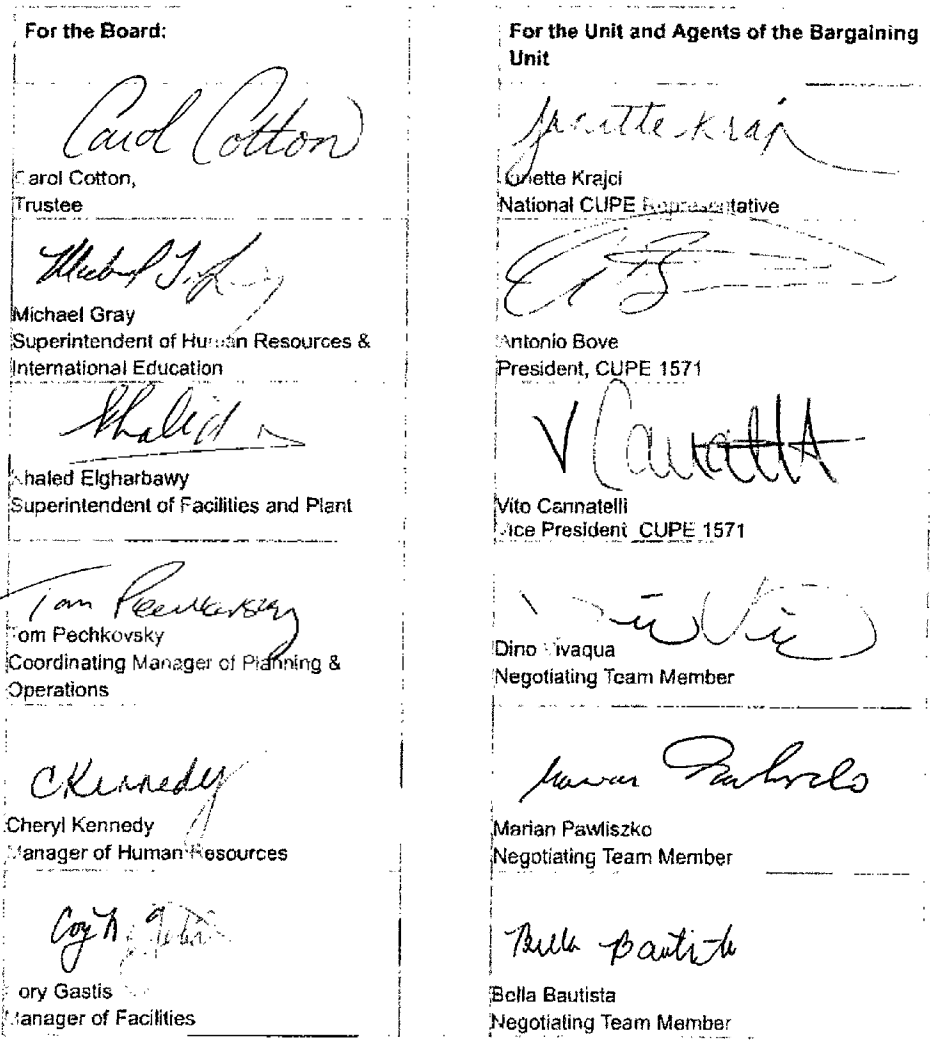 For the Board:
Carol Cotton
arol Cotton,
Trustee
Michael Gray
Superintendent of Human Resources &
International Education
Khalid
haled Elgharbawy
Superintendent of Facilities and Plant
Tom Pechkovsky
om Pechkovsky
Coordinating Manager of Planning &
Operations
CKennedy
Cheryl Kennedy
Manager of Human Resources
ory Gastis
Manager of Facilities
For the Unit and Agents of the Bargaining
Unit
Krajci
National CUPE Representative
Antonio Bove
President, CUPE 1571
V Cannatelli
Vito Cannatelli
Vice President CUPE 1571
Dino Vivaqua
Negotiating Team Member
Marian Pawliszko
Negotiating Team Member
Bella Bautista
Bella Bautista
Negotiating Team Member